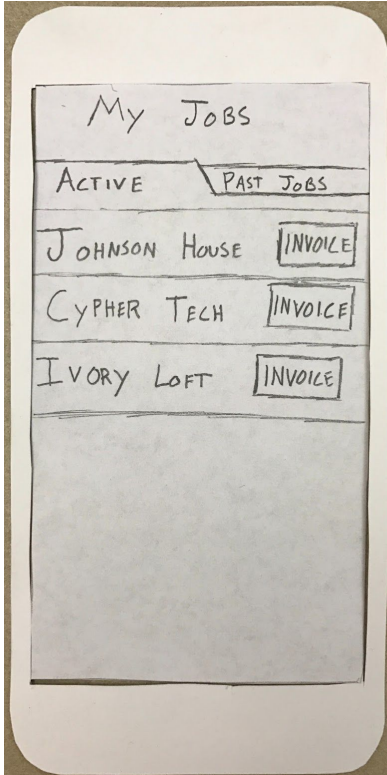 My JOBS
ACTIVE PAST JOBS
JOHNSON HOUSE INVOICE
CYPHER TECH INVOICE
IVORY LOFT INVOICE